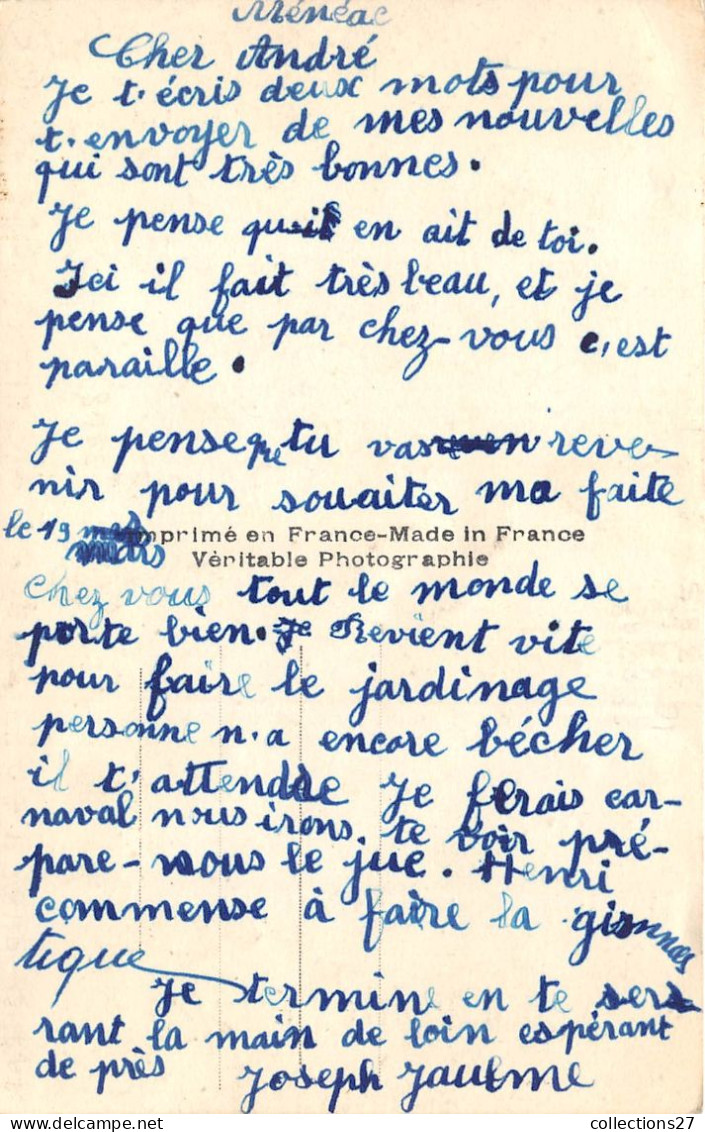 Ménéac
Cher André
Je t'écris deux mots pour
t'envoyer de mes nouvelles
qui sont très bonnes.
Je pense qu'il en ait de toi.
Ici il fait très beau, et je
pense que par chez-vous c'est
paraille.
Je pense que tu vas reve-
nir pour souaiter ma faite
le 19 mars
Imprimé en France-Made in France
Véritable Photographie
chez vous tout le monde se
porte bien. Je Revient vite
pour faire le jardinage
personne n'a encore bécher
il t'attendre Je ferais car-
naval nous irons te voir pré-
pare-nous le jue. Henri
commense à faire la gimnas
tique
Je termine en te ser
rant la main de loin espérant
de près Joseph Jaulme
collections27